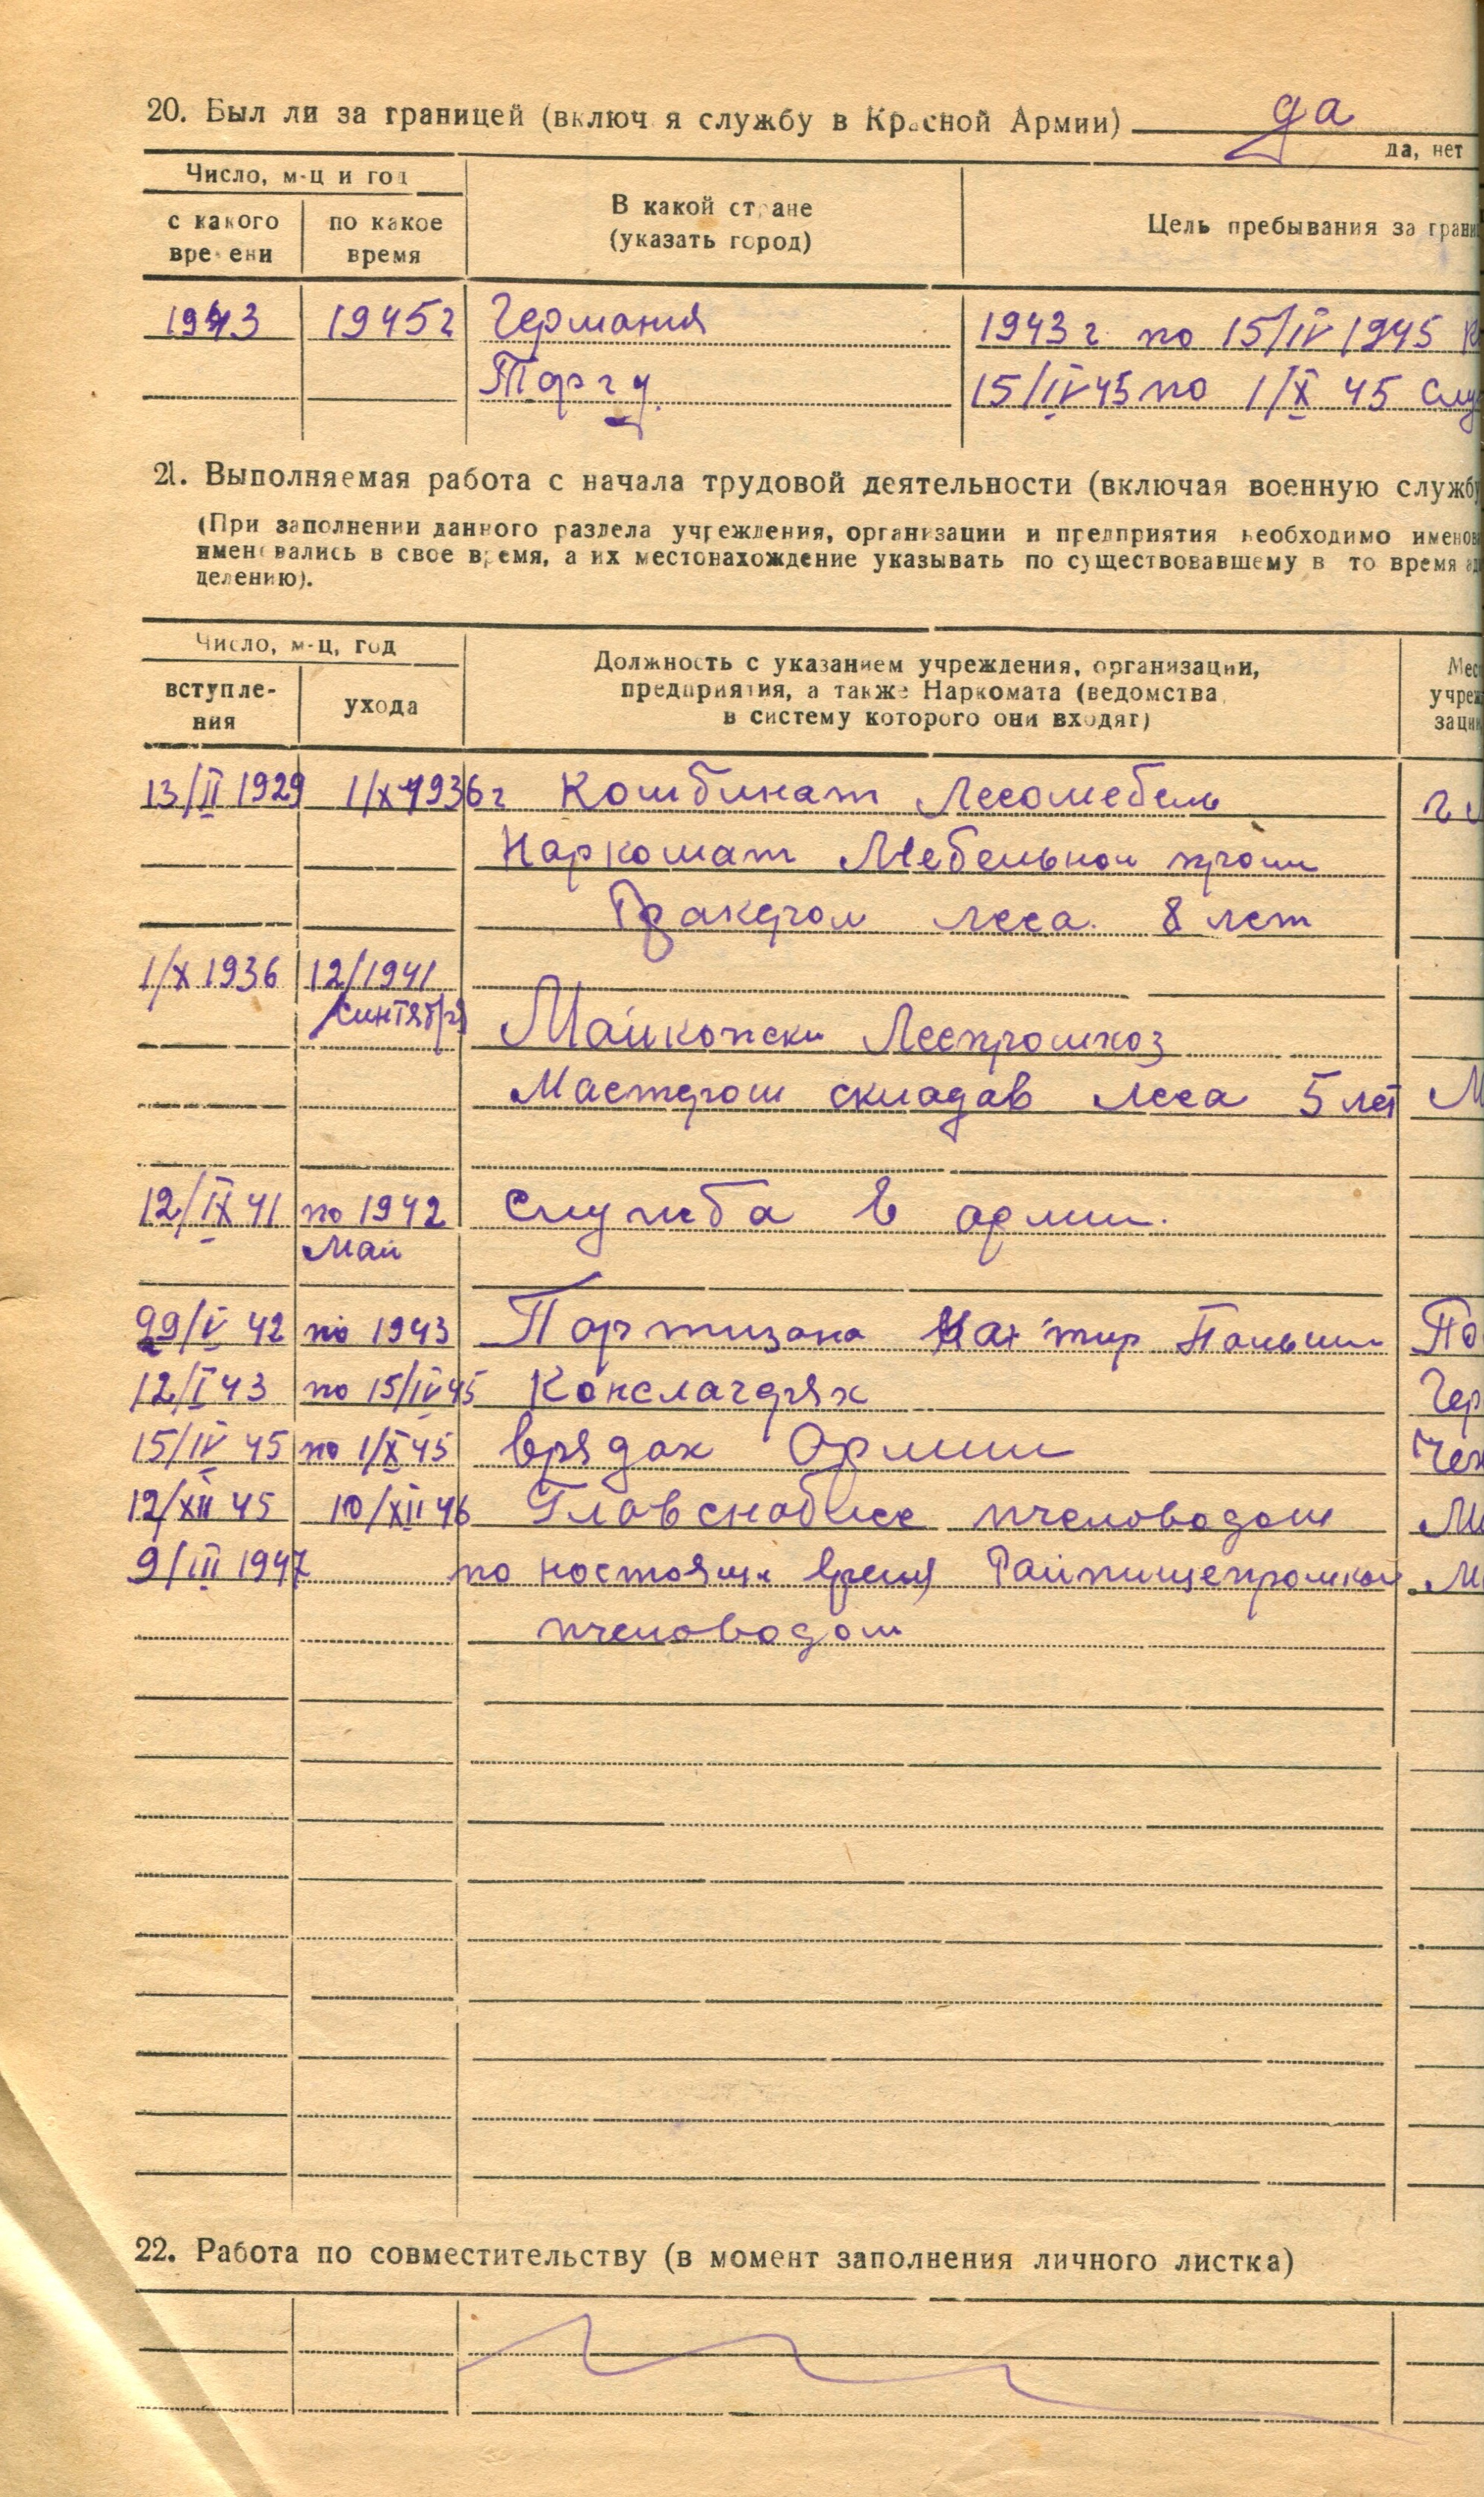 20. Был ли за границей (включ я службу в Красной Армии) да
да, нет
Число, м-ц и год
с какого времени
по какое время
В какой стране (указать город)
Цель пребывания за грани
1943 1945г Германия 1943 г по 15/IV 1945 К
Торгу 15/IV 45 по 1/X 45 Слу
21. Выполняемая работа с начала трудовой деятельности (включая военную службу
(При заполнении данного раздела учреждения, организации и предприятия необходимо именов
именовались в свое время, а их местонахождение указывать по существовавшему в то время ад
делению).
Число, м-ц, год
вступле-ния
ухода
Должность с указанием учреждения, организации,
предприятия, а также Наркомата (ведомства
в систему которого они входят)
Мес
учреж
заци
13/II 1929 1/X 1936г Комбинат Лесомебель г
Наркомат Мебельной пром
Бракером леса. 8 лет
1/X 1936 12/1941
синтября Майкопски Леспромхоз
Мастером складав леса 5 лет М
12/IX 41 по 1942 служба в армии.
Май
29/V 42 по 1943 Портизана Польши По
12/I 43 по 15/IV 45 Конслагдрях Гер
15/IV 45 по 1/X 45 врядах Армии Чех
12/XII 45 10/XII 46 Главснаблес пчеловодом М
9/III 1947 по настоящи время Райпищепромком М
пчеловодом
22. Работа по совместительству (в момент заполнения личного листка)